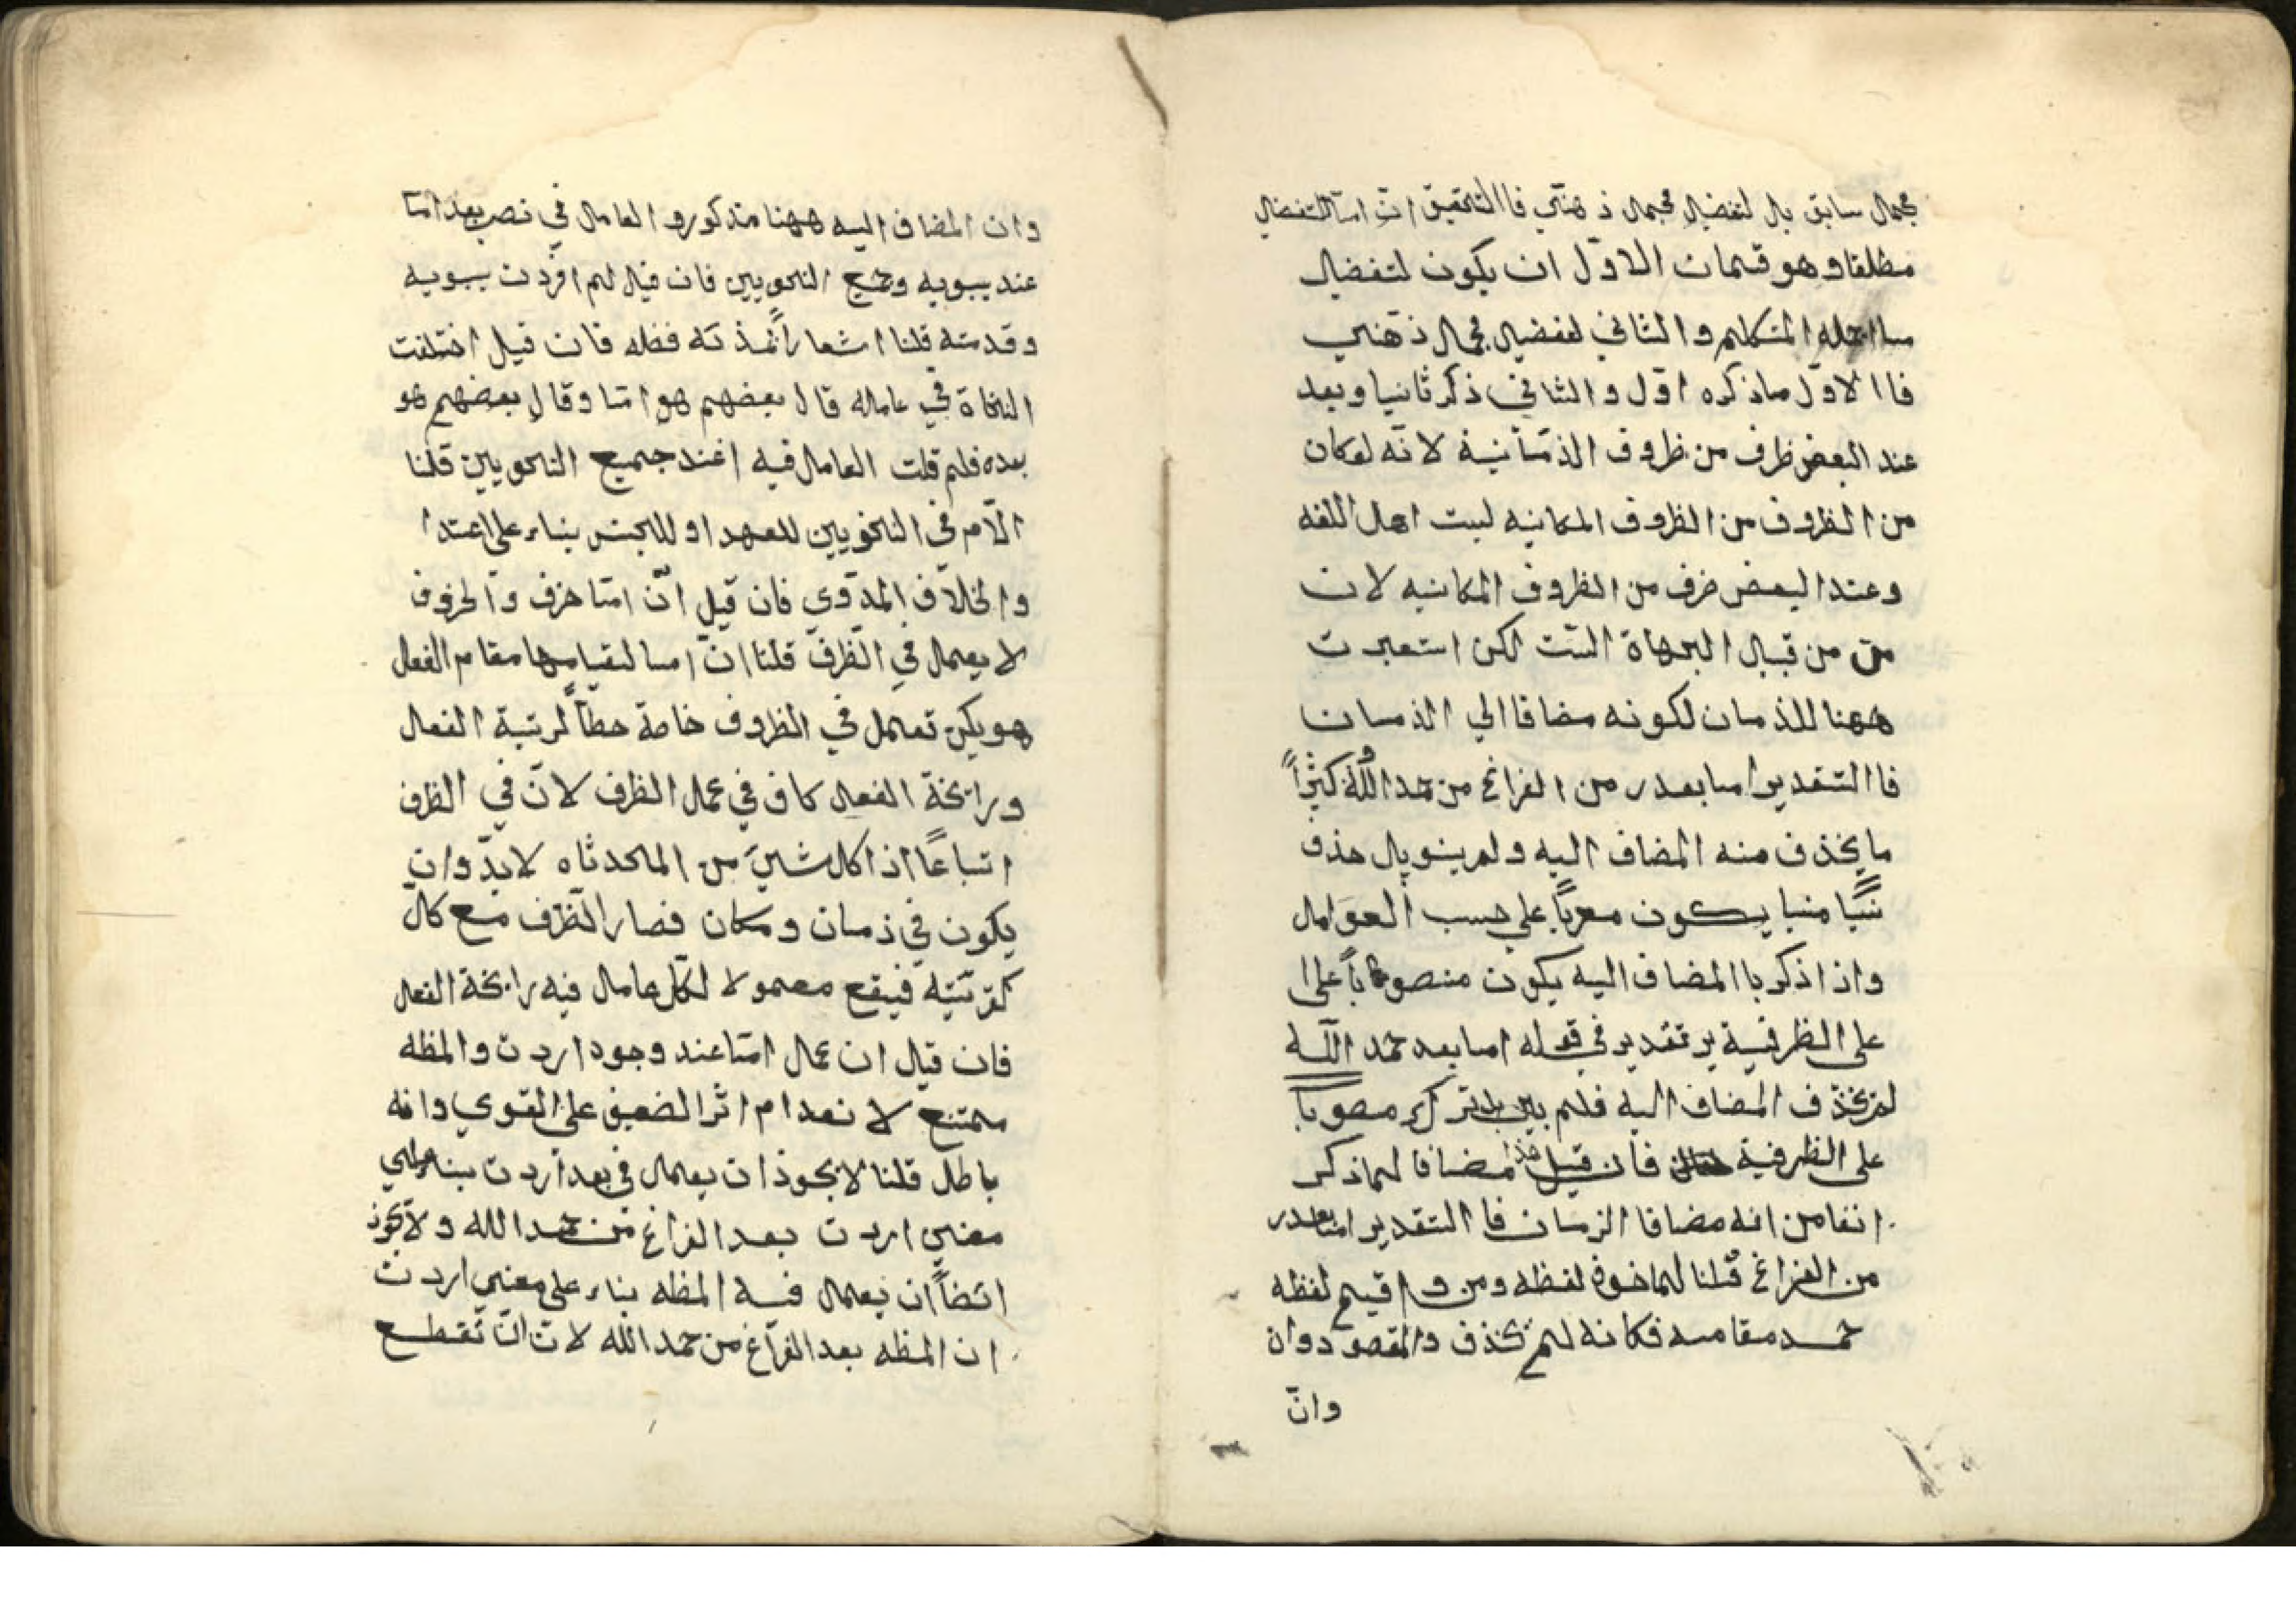 مجمل سابق بل لتفضيل مجمل ذهني فاالتحقيق ان امّا التفضيل
مطلقا وهو قسمان الاوّل ان يكون لتفضيل
ما اجمله المتكلم والثاني لتفضيل مجمال ذهني
فاالاوّل ماذكره اوّل والثاني ذكر ثانيا وبعد
عند البعض ظرف من ظروف الذمّانية لانّه لوكان
من الظروف من الظروف المكانيه ليست اهل اللغه
وعند البعض ضرف من الظروف المكانيه لان
من من قبيل الجهاة الستت لكن استعيرت
ههنا للذمان لكونه مضافا الي الذمان
فاالتقدير اما بعد ر من الفراغ من حمد اللّه وكثيراً
ما يحذف منه المضاف اليه ولم ينو بل حذف
نسيًا منيا يكون معرباً على حسب العوامل
واذا ذكر باالمضاف اليه يكون منصوباً على ا
على الظرفية بر تقدير في قوله اما بعد حمد اللّه
لم يحذف المضاف اليه فلم يبن بل ترك مصوباً
على الظرفية فان قيل هذا مضافا لما ذكر
انفا من انه مضافا الزمان فا التقدير امّا بعد ر
من الفراغ قلنا لما خوف لفظه ومن و اقيم لفظه
حمد مقامه فكانه لم يحذف والمقصود وان
وانّ
وان المضاف اليه ههنا مذكور والعامل في نصب بعد امّا
عند يبويه وجميع النحويين فان قيل لم افردت يبويه
وقدمته قلنا اشعاراً لمذته فضله فان قيل اختلفت
النحاة في عامله قال بعضهم هو امّا وقال بعضهم هو
بعده فلم قلت العامل فيه اعند جميع النحويين قلنا
الّام في النحويين للعهد او للجنس بناء على اعتدا
والخلاف المدّوي فان قيل انّ امّا حرف والحروف
لا يعمل في الظرف قلنا انّ اما لقيامها مقام الفعل
هو يكن تعمل في الظروف خاصة حطاً لرتبة الفعل
ورائحة الفعل كاف في عمل الظرف لانّ في الظرف
اتباعًا اذا كل شيئ من المحدثاه لا بدّ وان
يكون في ذمان ومكان فصار الظرف مع كل
كقرنتيه فيقع معمولا لكل عامل فيه رائحة الفعل
فان قيل ان عمل امّا عند وجود اردت والمظه
ممتنع لانعدام اثر الضعيف على القوي وانه
باطل قلنا لا يجوذ ان يعمل في بعد اردت بناء علي
معني اردت بعد الفراغ من حمد الله ولا يجوذ
ائضاً ان يعمل فيه المظه بناء على معني اردت
ان المظه بعد الفراغ من حمد الله لان انّ تقطع